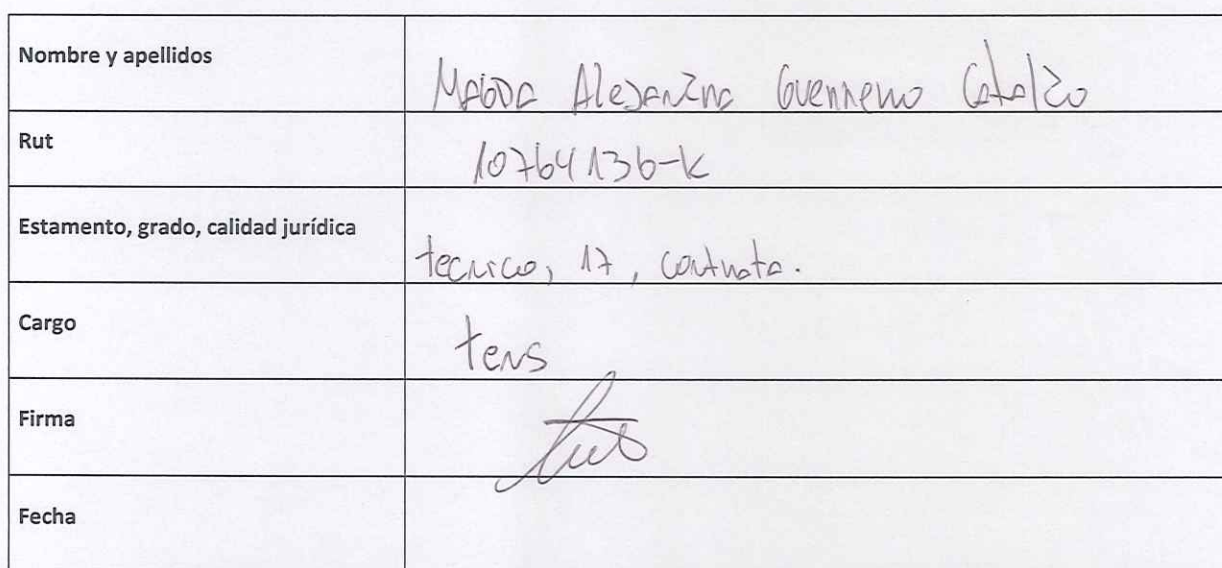 Nombre y apellidos
Magda Alejandra Guerrero Cataldo
Rut
10764136-K
Estamento, grado, calidad jurídica
tecnico, 17, contrata.
Cargo
tens
Firma
Fecha